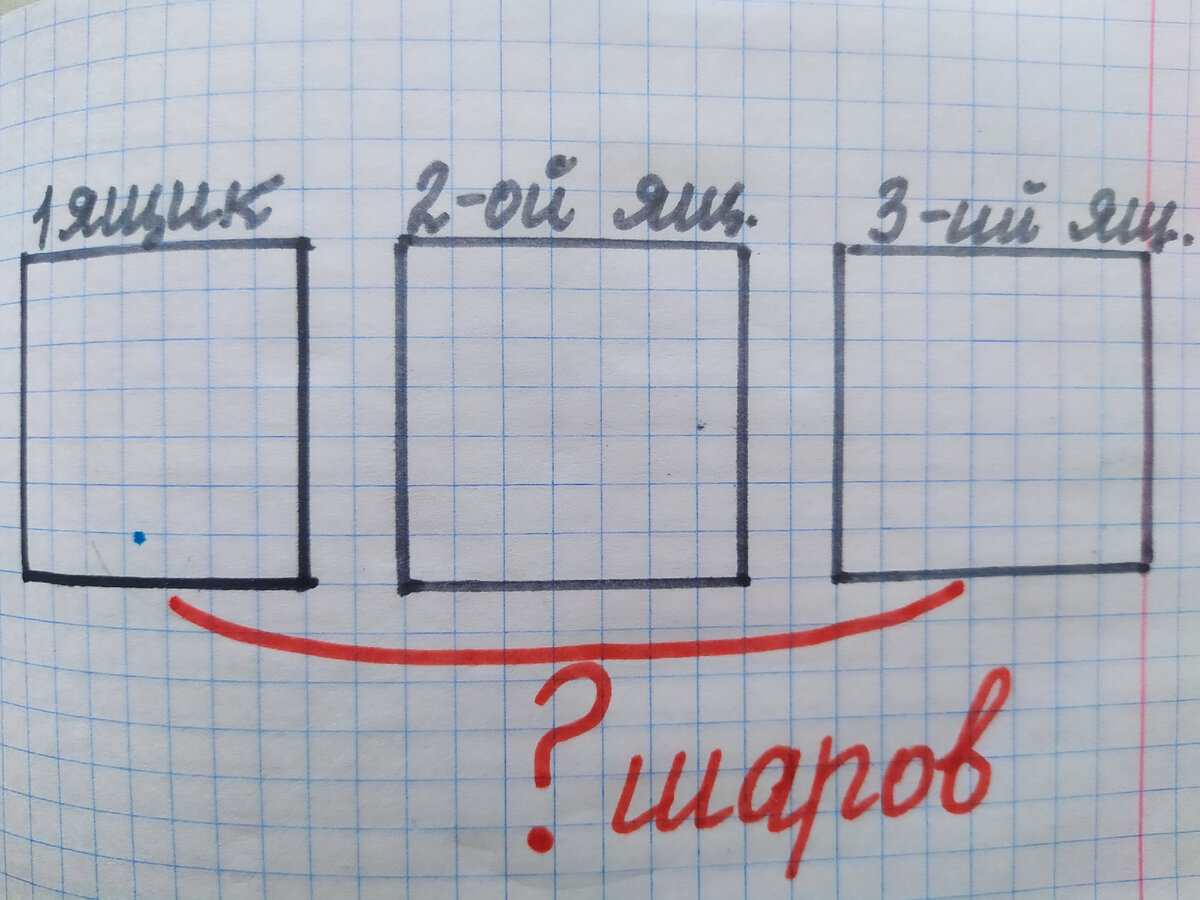 1 ящик 2-ой ящ. 3-ий ящ.
? шаров